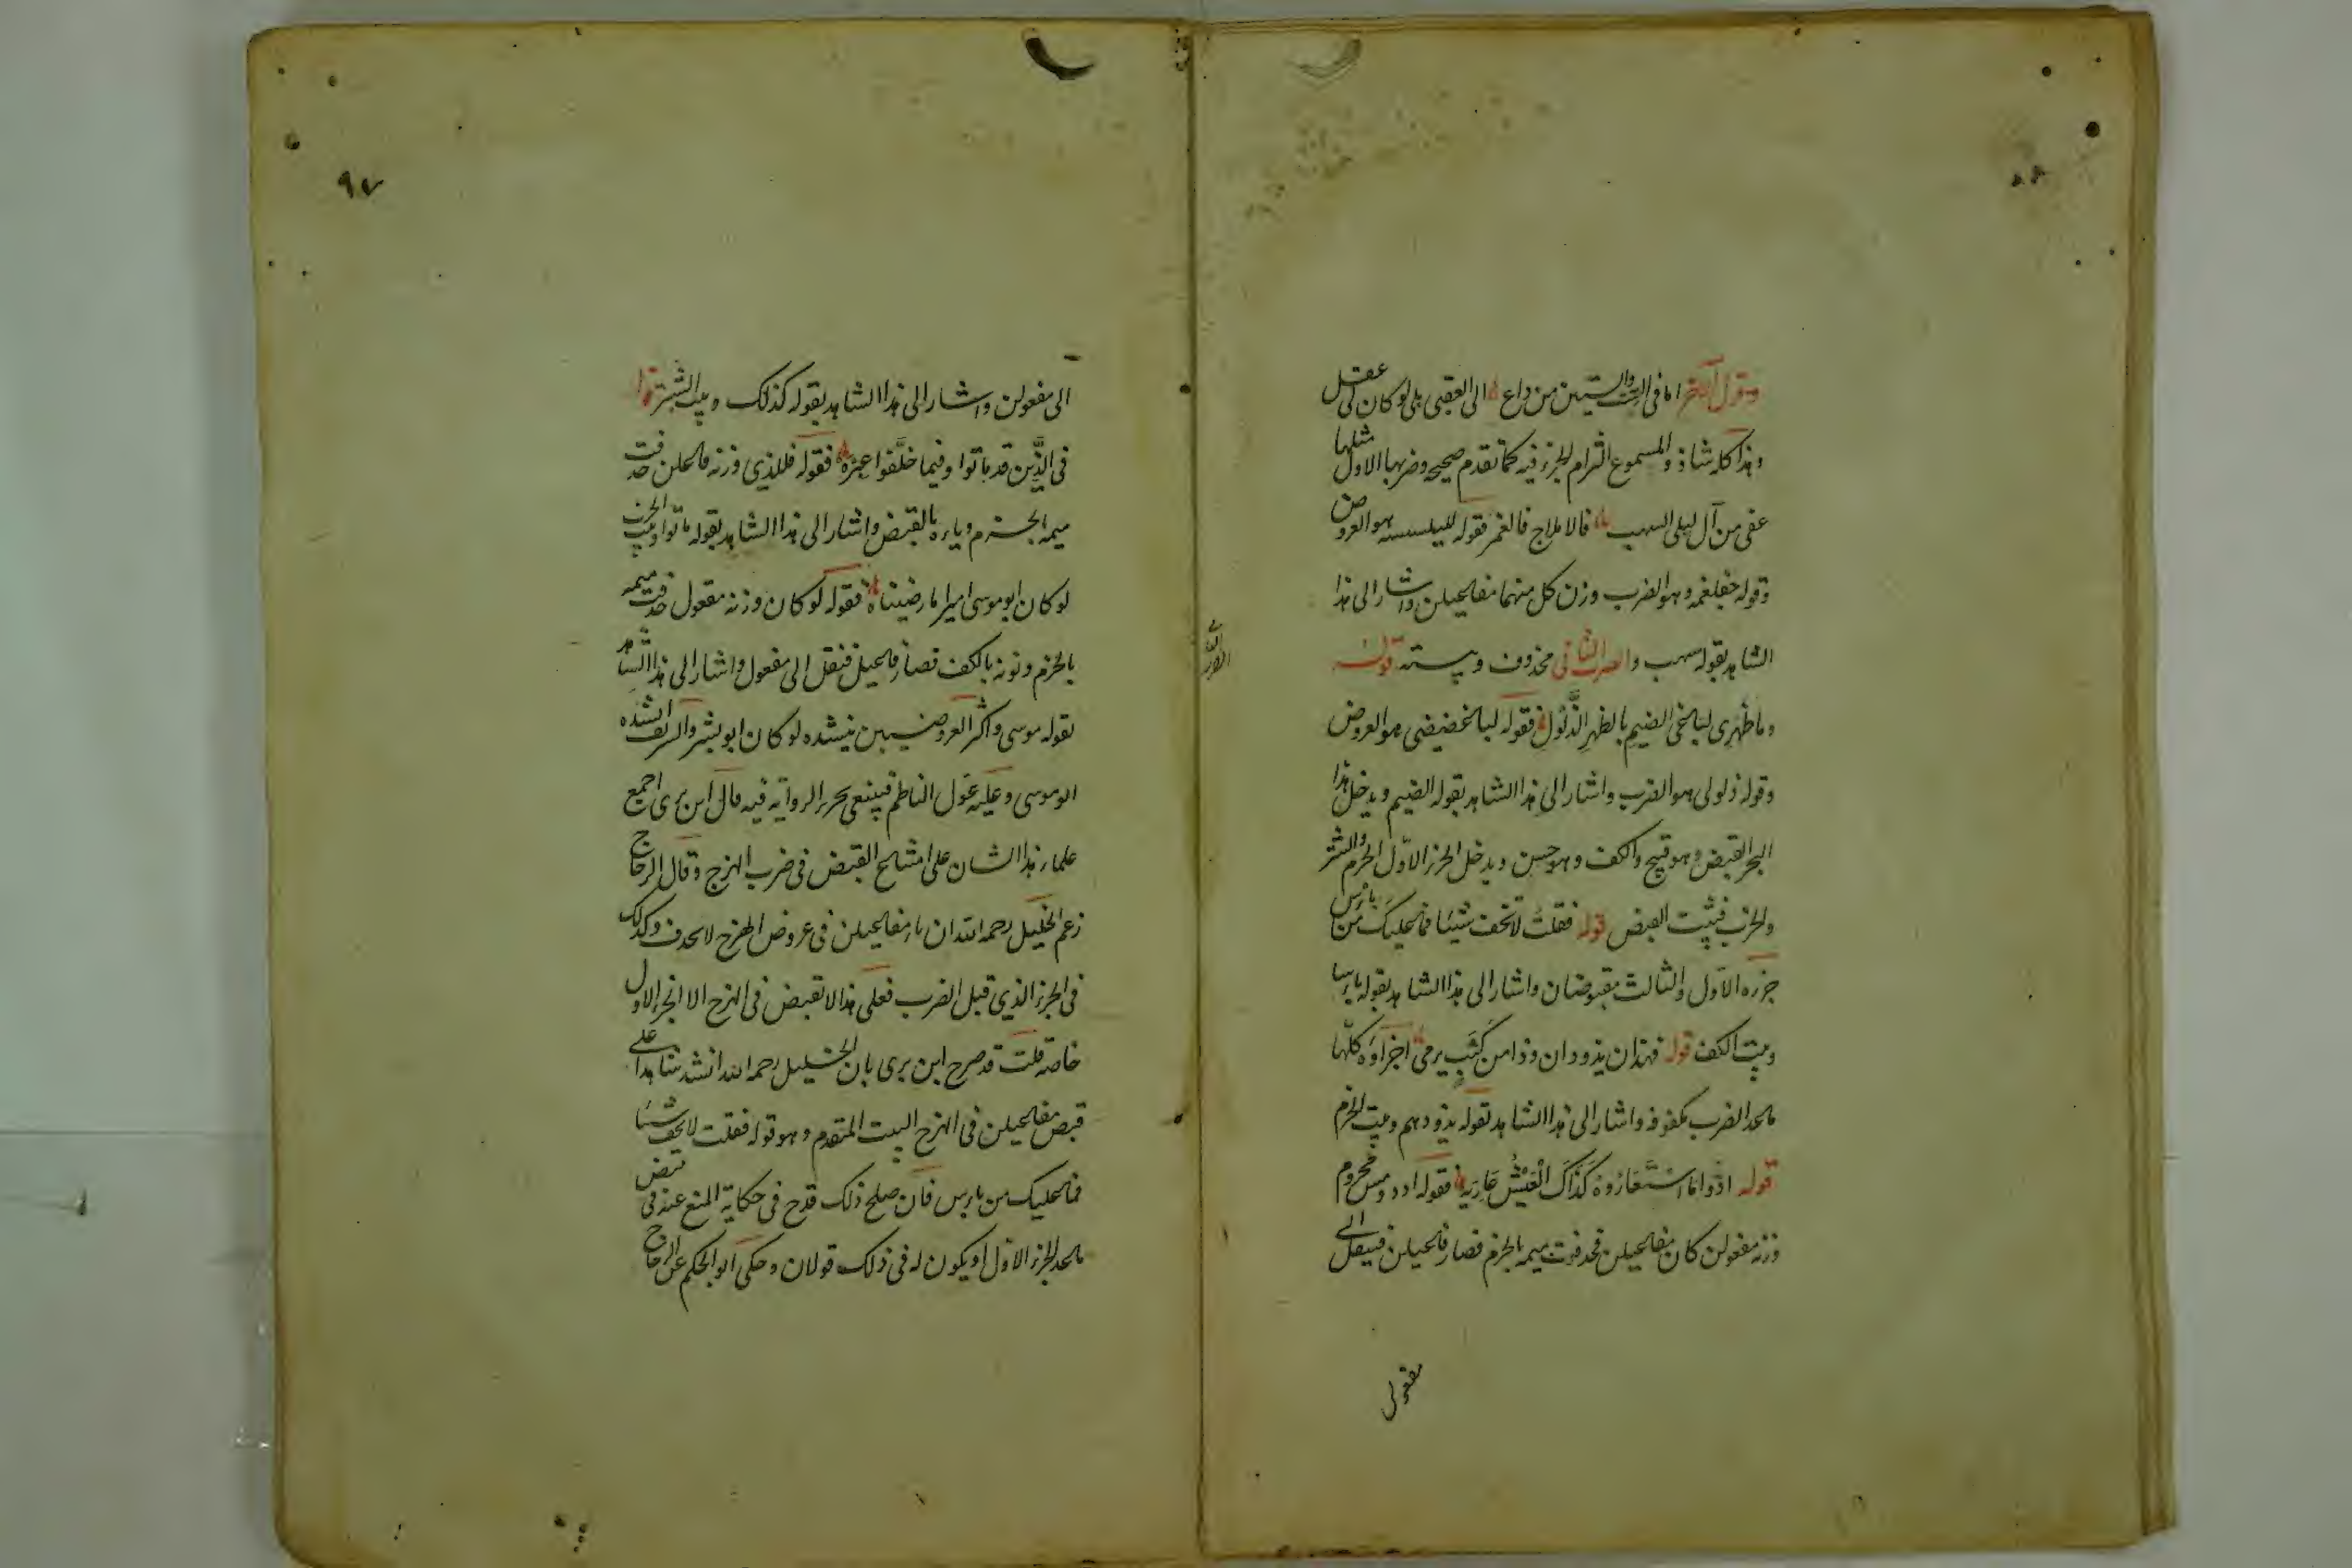 وقول الآخر اما في الست والستين من داع الى العقبى بلى لو كان لى عقل
وهذا كله شاذ والمسموع التزام الجزء فيه كما تقدم صحيح وضربها الاول مثلها
عفى من آل ليلى السهب فالاملاح فالغمر فقوله لليلسسه هو العروض
وقوله حفلغمرو هو الضرب وزن كل منهما مفاعيلن واشار الى هذا
الشاهد بقوله سهب والضرب الثانى محذوف وبيته قوله
وما ظهرى لباغى الضيم بالظهر الذلول فقوله لباغضيضى هو العروض
وقوله ذلولى هو الضرب واشار الى هذا الشاهد بقوله الضيم ويدخل هذا
البحر القبض وهو قبيح والكف وهو حسن ويدخل الجزء الاول الخرم والشتر
والخرب فبيت القبض قوله فقلت لا تخف شيئا فما عليك من باس
جزءه الاول والثالث مقبوضان واشار الى هذا الشاهد بقوله باسا
وبيت الكف قوله فهذان يذودان وذا من كثب يرمى اجزاؤه كلها
ماعدا الضرب مكفوفه واشار الى هذا الشاهد بقوله يذودهم وبيت الخرم
قوله ادوا ما استعاروه كذاك العيش عاريه فقوله اددومس مخروم
وزنه مفعولن كان مفاعيلن فحذفت ميمه بالخرم فصار فاعيلن فينقل
مفعولن
الى مفعولن واشار الى هذا الشاهد بقوله كذلك وبيت الشتر قوله
فى الذين قد ماتوا وفيما خلفوا عبره فقوله فللذى وزنه فاعلن حذفت
ميمه بالخرم وياءه بالقبض واشار الى هذا الشاهد بقوله ماتوا وبيت الخرب
لو كان ابو موسى اميرا ما رضيناه فقوله لو كان وزنه مفعول حذفت ميمه
بالخرم ونونه بالكف فصار فاعيل فنقل الى مفعول واشار الى هذا الشاهد
بقوله موسى واكثر العروضيين ينشده لو كان ابو بشر والشريف انشده
ابو موسى وعليه عول الناظم فينبغى تحرير الرواية فيه قال ابن برى اجمع
علماء هذا الشان على امتناع القبض فى ضرب الهزج وقال الزجاج
زعم الخليل رحمه الله ان ياء مفاعيلن فى عروض الهزج لا تحذف وكذلك
فى الجزء الذى قبل الضرب فعلى هذا لا تقبض فى الهزج الا الجزء الاول
خاصة قلت قد صرح ابن برى بان الخليل رحمه الله انشد شاهدا على
قبض مفاعيلن فى الهزج البيت المتقدم وهو قوله فقلت لا تخف شيئا
فما عليك من باس فان صلح ذلك قدح فى حكاية المنع عنه فى قبض
ماعدا الجزء الاول او يكون له فى ذلك قولان وحكى ابو الحكم عن الزجاج